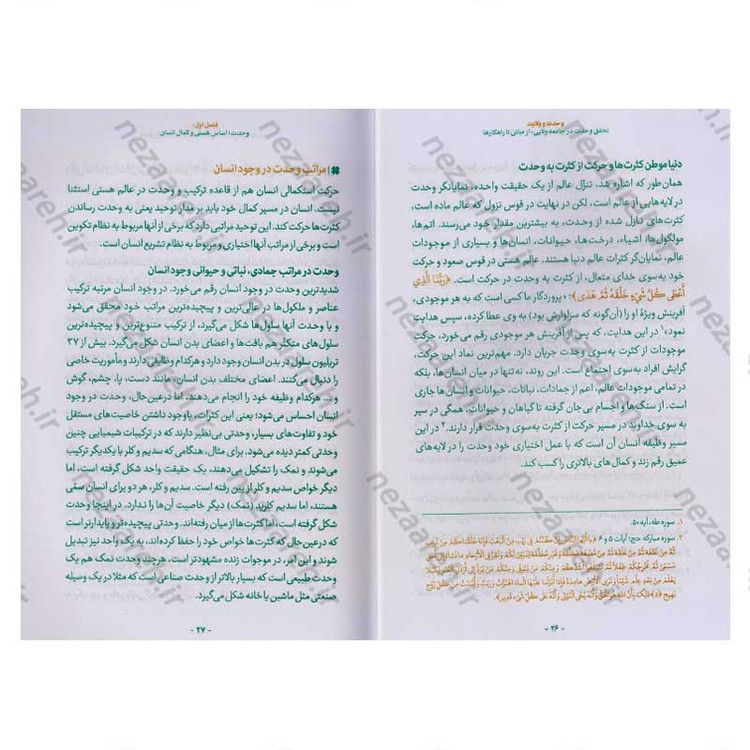 وحدت و ولایت
تحقق وحدت در جامعه ولایی، از مبانی تا راهکارها
دنیا موطن کثرت‌ها و حرکت از کثرت به وحدت
همان‌طور که اشاره شد، تنزّل عالم از یک حقیقت واحده، نمایانگر وحدت
در لایه‌هایی از عالم است، لکن در نهایت در قوس نزول که عالم ماده است،
کثرت‌های نازل شده از وحدت، به بیشترین مقدار خود می‌رسند. اتم‌ها،
مولکول‌ها، اشیاء، درخت‌ها، حیوانات، انسان‌ها و بسیاری از موجودات
عالم، نمایان‌گر کثرات عالم دنیا هستند. عالم هستی در قوس صعود و حرکت
خود به‌سوی خدای متعال، از کثرت به وحدت در حرکت است. ﴿رَبُّنَا الَّذِي
أَعْطَى كُلَّ شَيْءٍ خَلْقَهُ ثُمَّ هَدَى﴾؛ «پروردگار ما کسی است که به هر موجودی،
آفرینش ویژهٔ او را (آن‌گونه که سزاوارش بود) به وی عطا کرده، سپس هدایت
نمود»۱ در این هدایت، که پس از آفرینش هر موجودی رقم می‌خورد، حرکت
موجودات از کثرت به‌سوی وحدت جریان دارد. مهم‌ترین نماد این حرکت،
گرایش افراد به‌سوی اجتماع است. این روند، نه‌تنها در میان انسان‌ها، بلکه
در تمامی موجودات عالم، اعم از جمادات، نباتات، حیوانات و انسان‌ها جاری
است. از سنگ‌ها و اجسام بی جان گرفته تا گیاهان و حیوانات، همگی در سیر
به سوی خداوند در مسیر حرکت از کثرت به‌سوی وحدت قرار دارند.۲ در این
مسیر وظیفه انسان آن است که با عمل اختیاری خود وحدت را در لایه‌های
عمیق رقم زند و کمال‌های بالاتری را کسب کند.
۱. سوره طه، آیه ۵۰.
۲. سوره مبارکه حج: آیات ۵ و ۶ ﴿يَا أَيُّهَا النَّاسُ إِنْ كُنْتُمْ فِي رَيْبٍ مِنَ الْبَعْثِ فَإِنَّا خَلَقْنَاكُمْ مِنْ تُرَابٍ
ثُمَّ مِنْ نُطْفَةٍ ثُمَّ مِنْ عَلَقَةٍ ثُمَّ مِنْ مُضْغَةٍ مُخَلَّقَةٍ وَغَيْرِ مُخَلَّقَةٍ لِنُبَيِّنَ لَكُمْ وَنُقِرُّ فِي الْأَرْحَامِ مَا نَشَاءُ إِلَى أَجَلٍ
مُسَمًّى ثُمَّ نُخْرِجُكُمْ طِفْلًا ثُمَّ لِتَبْلُغُوا أَشُدَّكُمْ وَمِنْكُمْ مَنْ يُتَوَفَّى وَمِنْكُمْ مَنْ يُرَدُّ إِلَى أَرْذَلِ الْعُمُرِ لِكَيْلَا
يَعْلَمَ مِنْ بَعْدِ عِلْمٍ شَيْئًا وَتَرَى الْأَرْضَ هَامِدَةً فَإِذَا أَنْزَلْنَا عَلَيْهَا الْمَاءَ اهْتَزَّتْ وَرَبَتْ وَأَنْبَتَتْ مِنْ كُلِّ زَوْجٍ
بَهِيجٍ (۵) ذَلِكَ بِأَنَّ اللَّهَ هُوَ الْحَقُّ وَأَنَّهُ يُحْيِي الْمَوْتَى وَأَنَّهُ عَلَى كُلِّ شَيْءٍ قَدِيرٌ﴾.
- ۲۶ -
فصل اول:
وحدت؛ اساس هستی و کمال انسان
# | مراتب وحدت در وجود انسان
حرکت استکمالی انسان هم از قاعده ترکیب و وحدت در عالم هستی استثنا
نیست. انسان در مسیر کمال خود باید بر مدار توحید یعنی به وحدت رساندن
کثرت‌ها حرکت کند. این توحید مراتبی دارد که برخی از آنها مربوط به نظام تکوین
است و برخی از مراتب آنها اختیاری و مربوط به نظام تشریع انسان است.
وحدت در مراتب جمادی، نباتی و حیوانی وجود انسان
شدیدترین وحدت در وجود انسان رقم می‌خورد. در وجود انسان مرتبه ترکیب
عناصر و ملکول‌ها در عالی‌ترین و پیچیده‌ترین مراتب خود محقق می‌شود
و با وحدت آنها سلول‌ها شکل می‌گیرد، از ترکیب متنوع‌ترین و پیچیده‌ترین
سلول های متکثر هم بافت‌ها و اعضای بدن انسان شکل می‌گیرد. بیش از ۳۷
تریلیون سلول در بدن انسان وجود دارد و هرکدام وظایفی دارند و مأموریت خاصی
را دنبال می‌کنند. اعضای مختلف بدن انسان، مانند دست، پا، چشم، گوش
و ... هرکدام وظیفه خود را انجام می‌دهند، اما درعین‌حال، وحدت در وجود
انسان احساس می‌شود؛ یعنی این کثرات، باوجود داشتن خاصیت‌های مستقل
خود و تفاوت‌های بسیار، وحدتی بی‌نظیر دارند که در ترکیبات شیمیایی چنین
وحدتی کمتر دیده می‌شود. برای مثال، هنگامی که سدیم و کلر با یکدیگر ترکیب
می‌شوند و نمک را تشکیل می‌دهند، یک حقیقت واحد شکل گرفته است، اما
دیگر خواص سدیم و کلر از بین رفته است. سدیم و کلر، هر دو برای انسان سمّی
هستند، اما سدیم کلرید (نمک) دیگر خاصیت آن ها را ندارد. در اینجا وحدت
شکل گرفته است، اما کثرت‌ها از میان رفته‌اند. وحدتی پیچیده‌تر و پایدارتر است
که درعین‌حال که کثرت‌ها خواص خود را حفظ کرده‌اند، به یک واحد نیز تبدیل
شوند و این امر، در موجودات زنده مشهودتر است، هرچند وحدت نمک هم یک
وحدت طبیعی است که بسیار بالاتر از وحدت صناعی است که مثلا در یک وسیله
صنعتی مثل ماشین یا خانه شکل می‌گیرد.
- ۲۷ -
nezaareh.ir